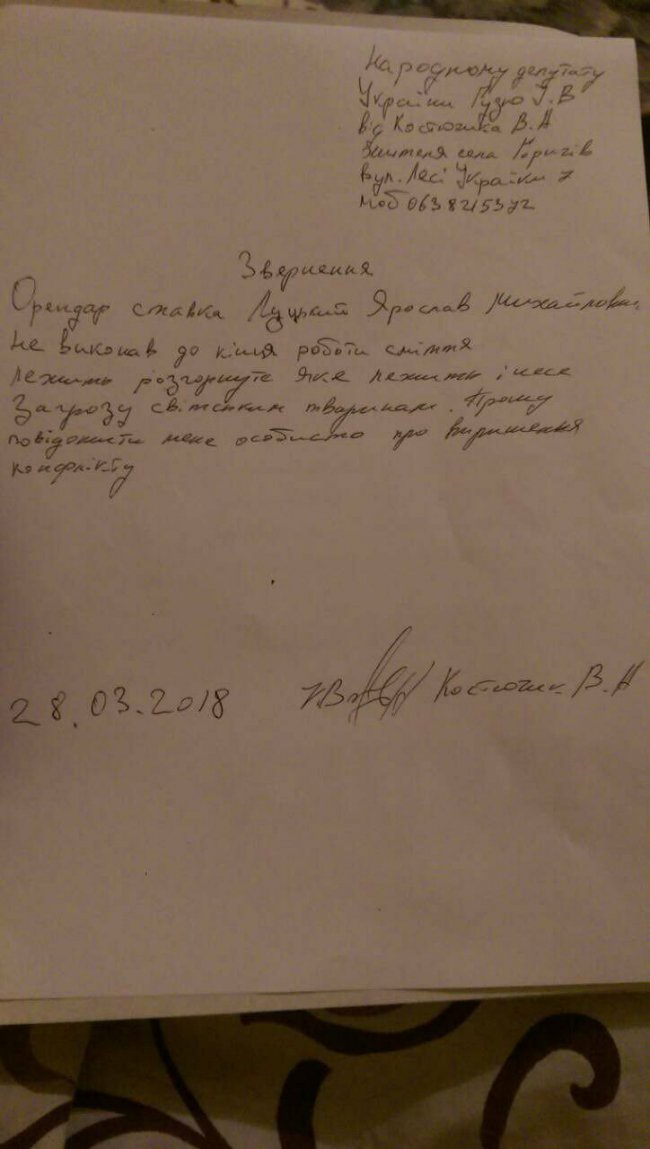 Народному депутату
України Гузю І.В
від Костючика В.А
Жителя села Горигів
вул. Лесі Українки 7
моб 0638215372
Звернення
Орендар ставка Луцький Ярослав Михайлович
не виконав до кінця роботи сміття
лежить розгорнуте яке лежить і несе
Загрозу світським тваринам. Прошу
повідомити мене особисто про вирішення
конфлікту
28.03.2018 Костючик В.А